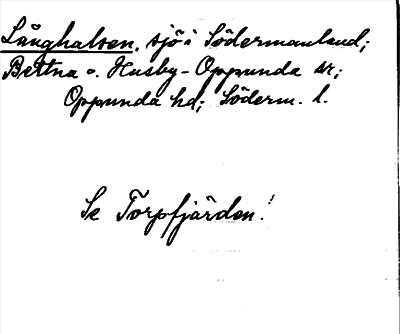 Långhalsen, sjö i Södermanland;
Bettna o. Husby-Oppunda sr;
Oppunda hd; Söderm. l.
Se Torpfjärden!